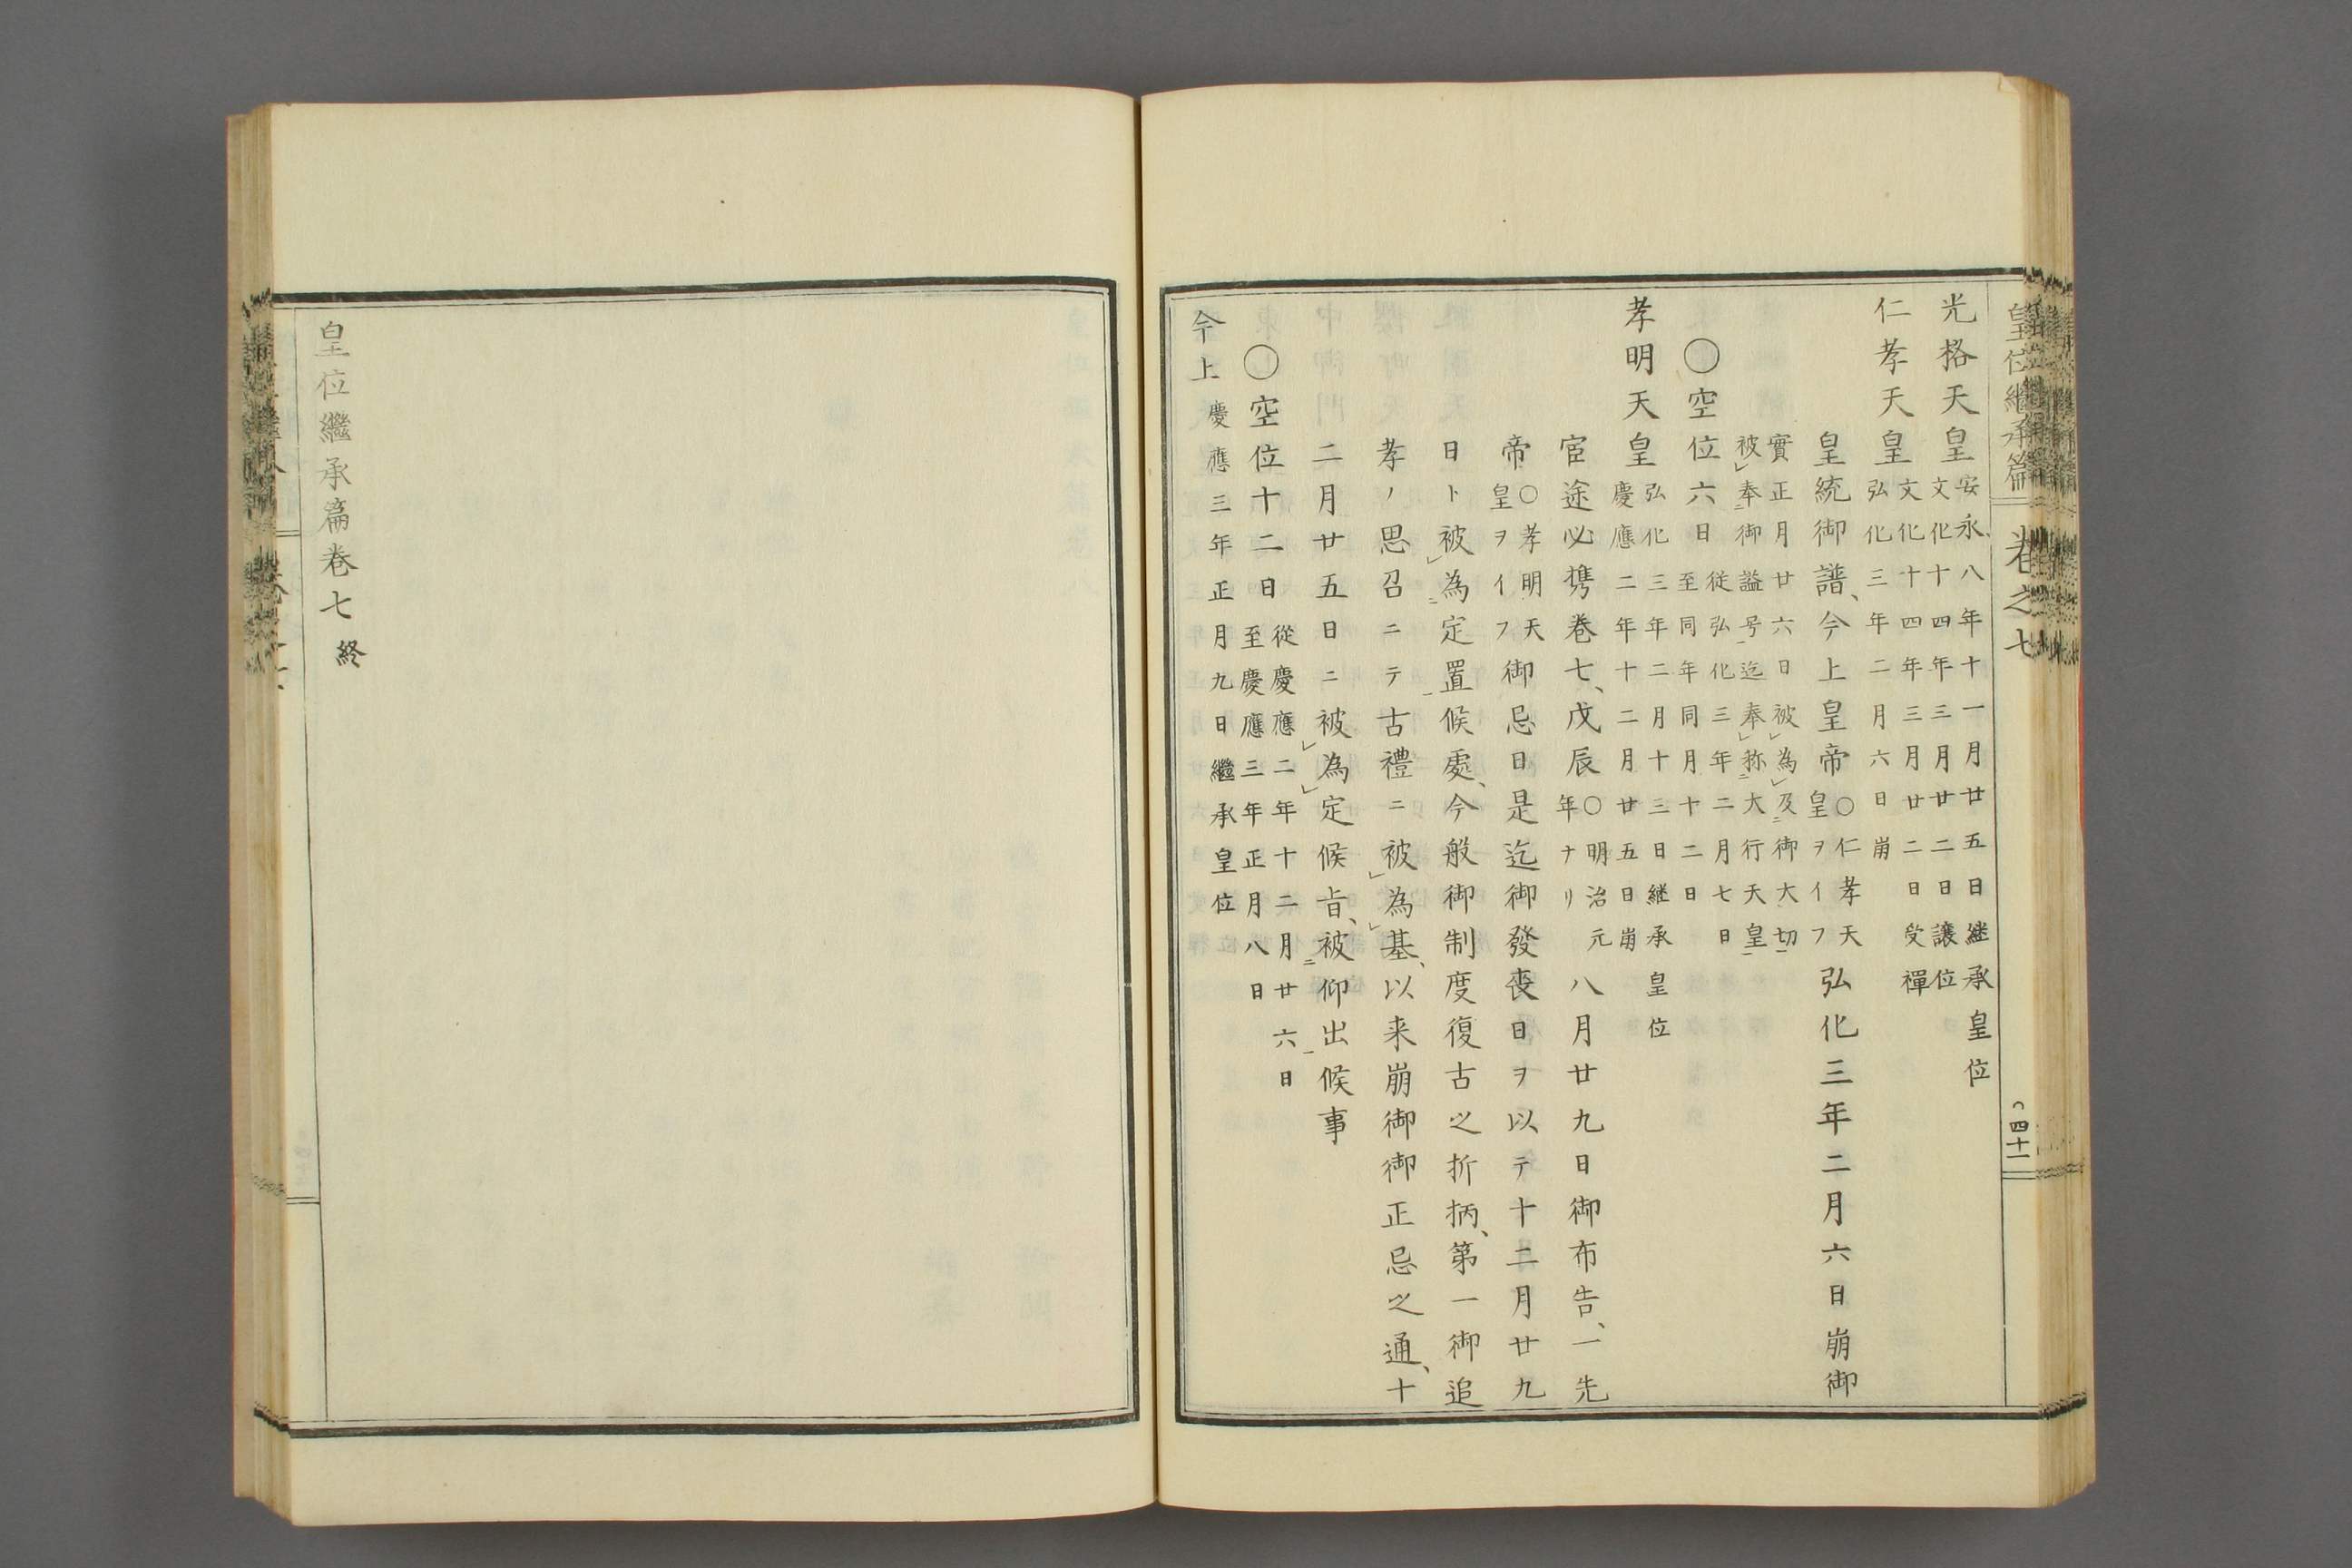 皇位繼承篇 卷之七 四十一
光格天皇 安永八年十一月廿五日継承皇位
文化十四年三月廿二日讓位
仁孝天皇 文化十四年三月廿二日受禪
弘化三年二月六日崩
皇統御譜、今上皇帝 〇仁孝天
皇ヲイフ 弘化三年二月六日崩御
實正月廿六日被為及御大切
被奉御謚号迄奉称大行天皇
〇空位六日 従弘化三年二月七日
至同年同月十二日
孝明天皇 弘化三年二月十三日継承皇位
慶應二年十二月廿五日崩
宦途必携卷七、戊辰 〇明治元
年ナリ 八月廿九日御布告、一先
帝 〇孝明天
皇ヲイフ 御忌日是迄御發喪日ヲ以テ十二月廿九
日ト被為定置候處、今般御制度復古之折柄、第一御追
孝ノ思召ニテ古禮ニ被為基、以来崩御御正忌之通、十
二月廿五日ニ被為定候旨、被仰出候事
〇空位十二日 從慶應二年十二月廿六日
至慶應三年正月八日
今上 慶應三年正月九日繼承皇位
皇位繼承篇卷七 終